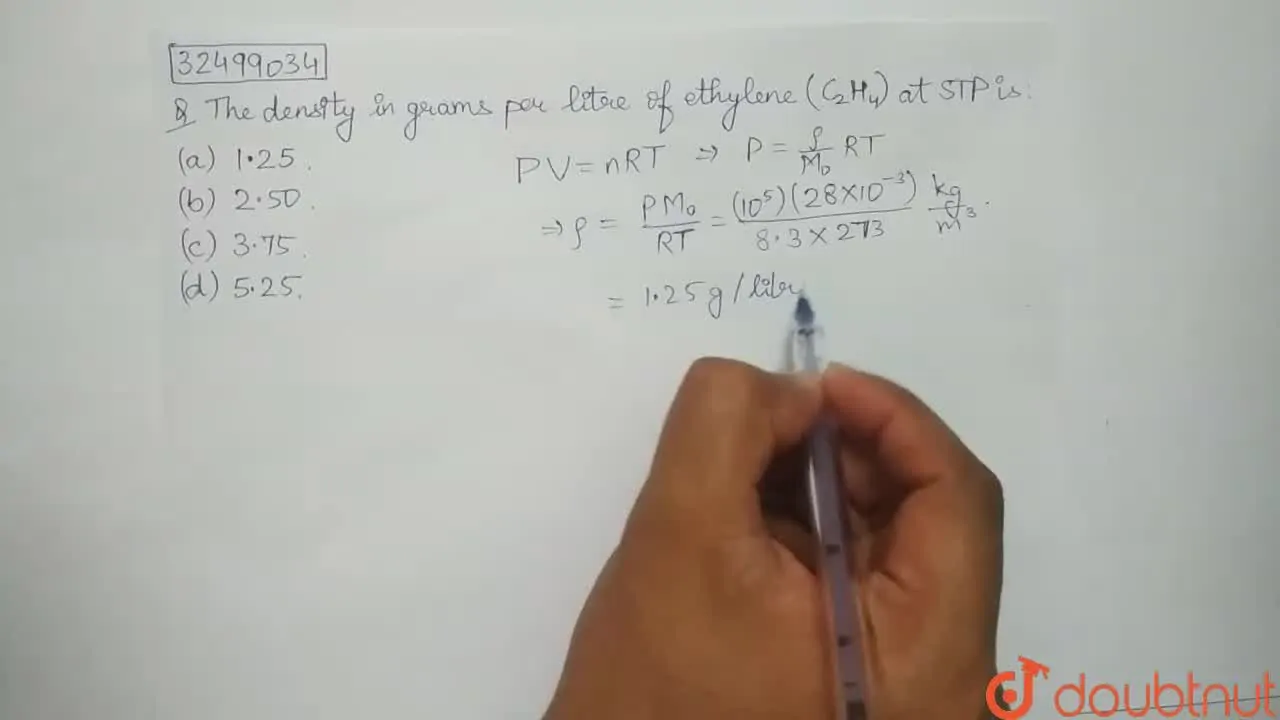 32499034
Q The density in grams per litre of ethylene (C₂H₄) at STP is:
(a) 1.25.
(b) 2.50.
(c) 3.75.
(d) 5.25.
PV = nRT ⇒ P = ρ/M₀ RT
⇒ ρ = PM₀/RT = (10⁵)(28×10⁻³)/8.3×273 kg/m³.
= 1.25 g/litr
doubtnut